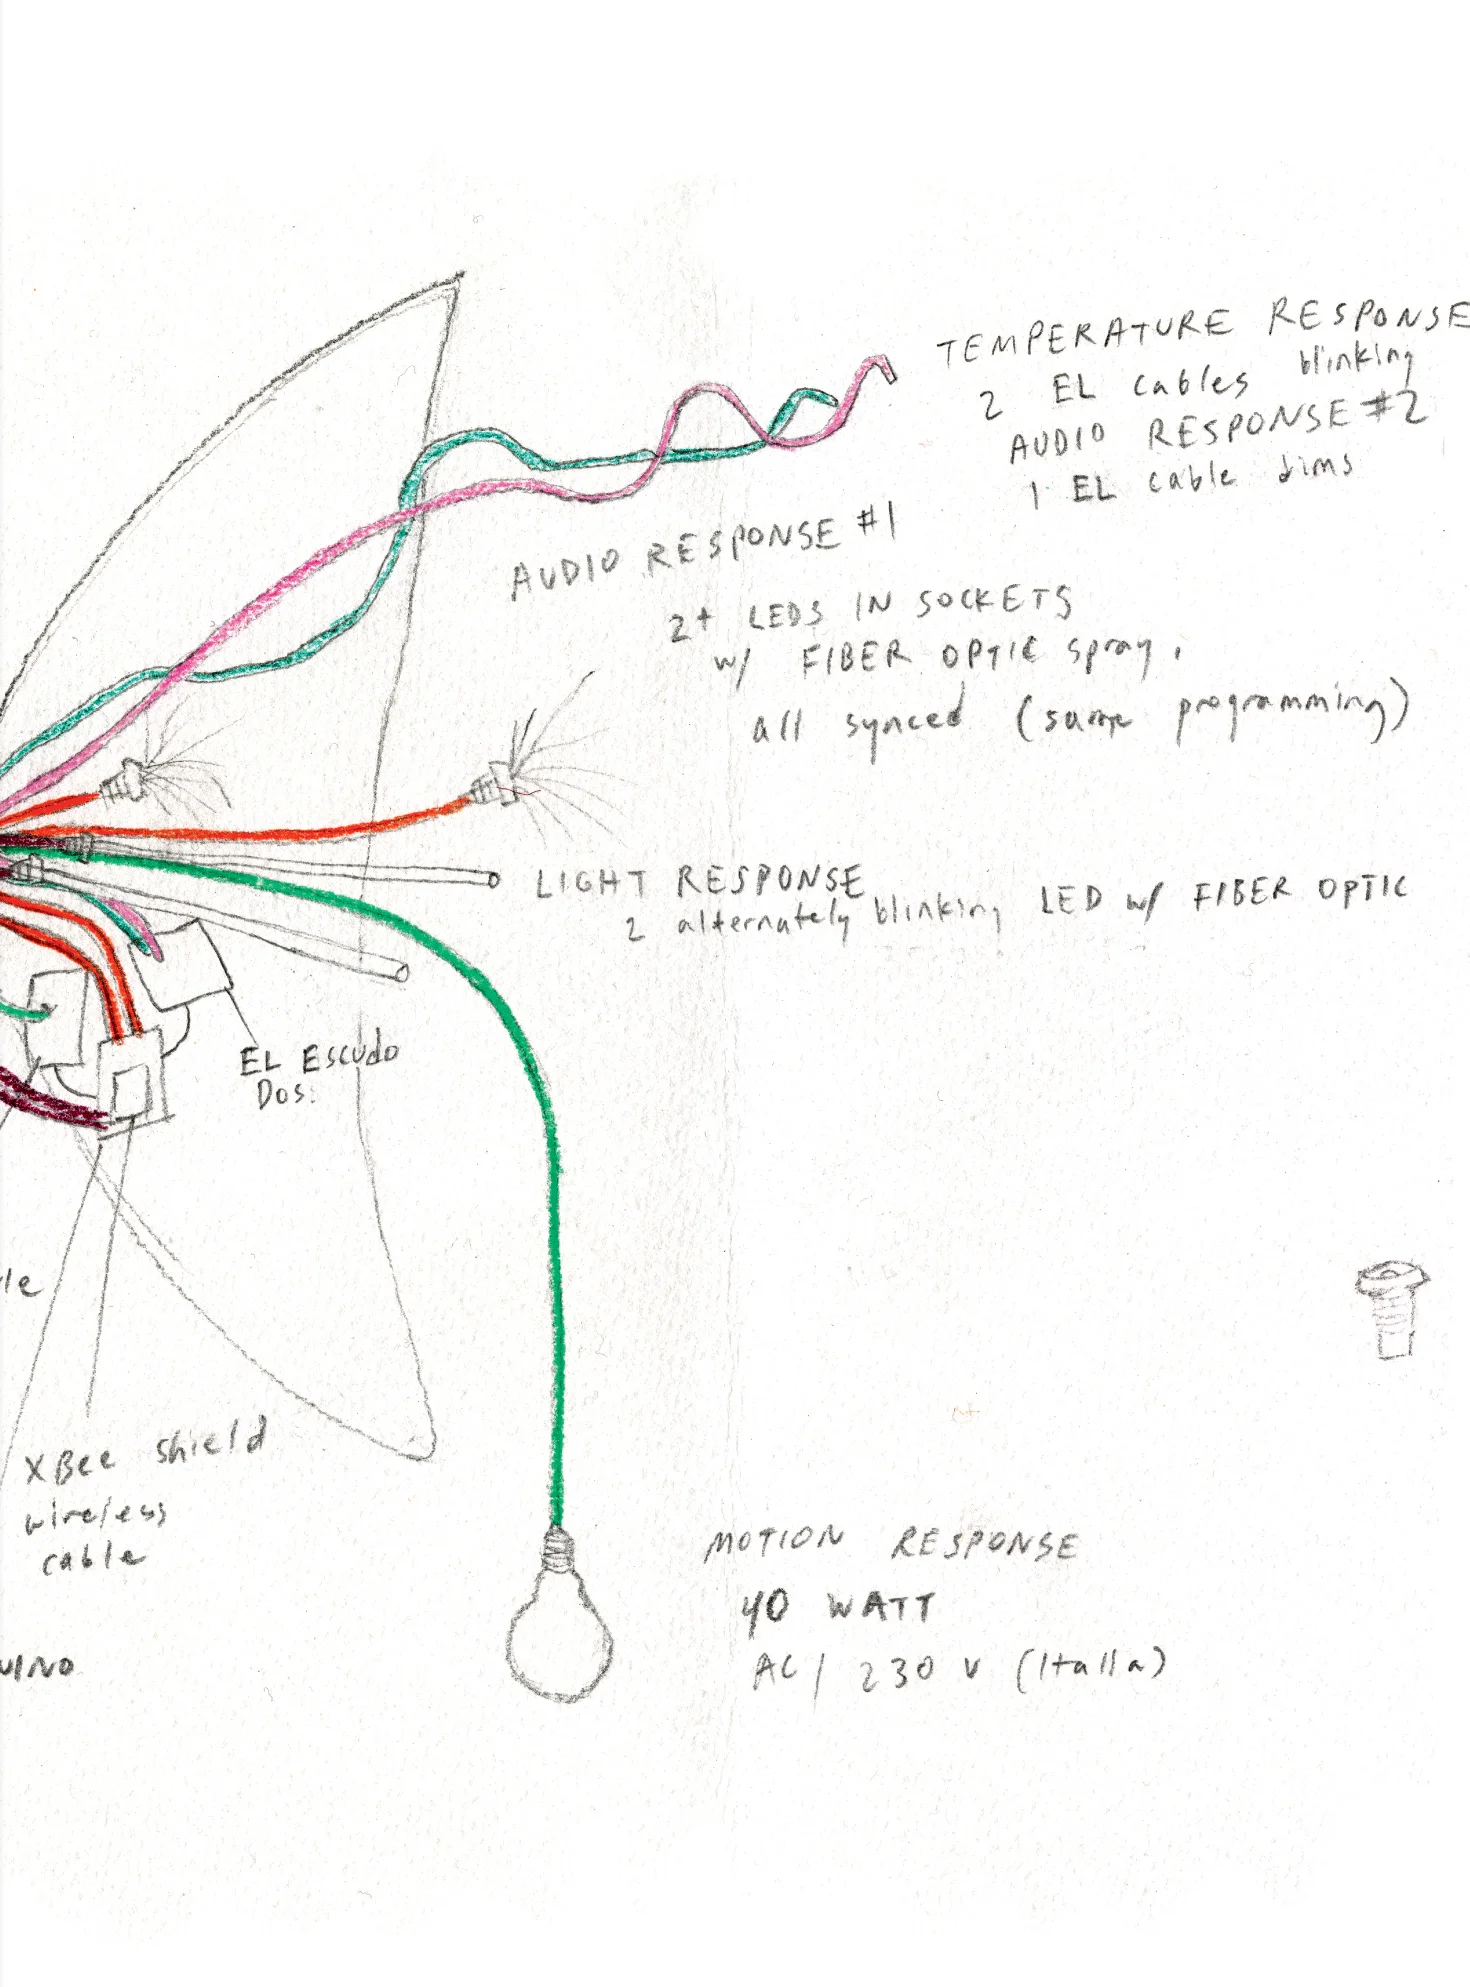 TEMPERATURE RESPONSE
2 EL cables blinking
AUDIO RESPONSE #2
1 EL cable dims
AUDIO RESPONSE #1
2+ LEDS IN SOCKETS
w/ FIBER OPTIC spray,
all synced (same programming)
LIGHT RESPONSE
2 alternately blinking LED w/ FIBER OPTIC
EL Escudo
Dos.
le
XBee shield
wireless
cable
UINO
MOTION RESPONSE
40 WATT
AC / 230 V (Italia)